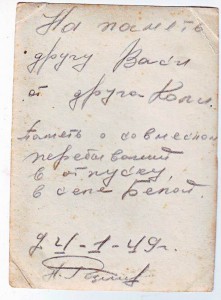 На память
другу Васи
от друга Коли.
Память о совместном
пребывании
в отпуску,
в селе Белой.
-1-49г.